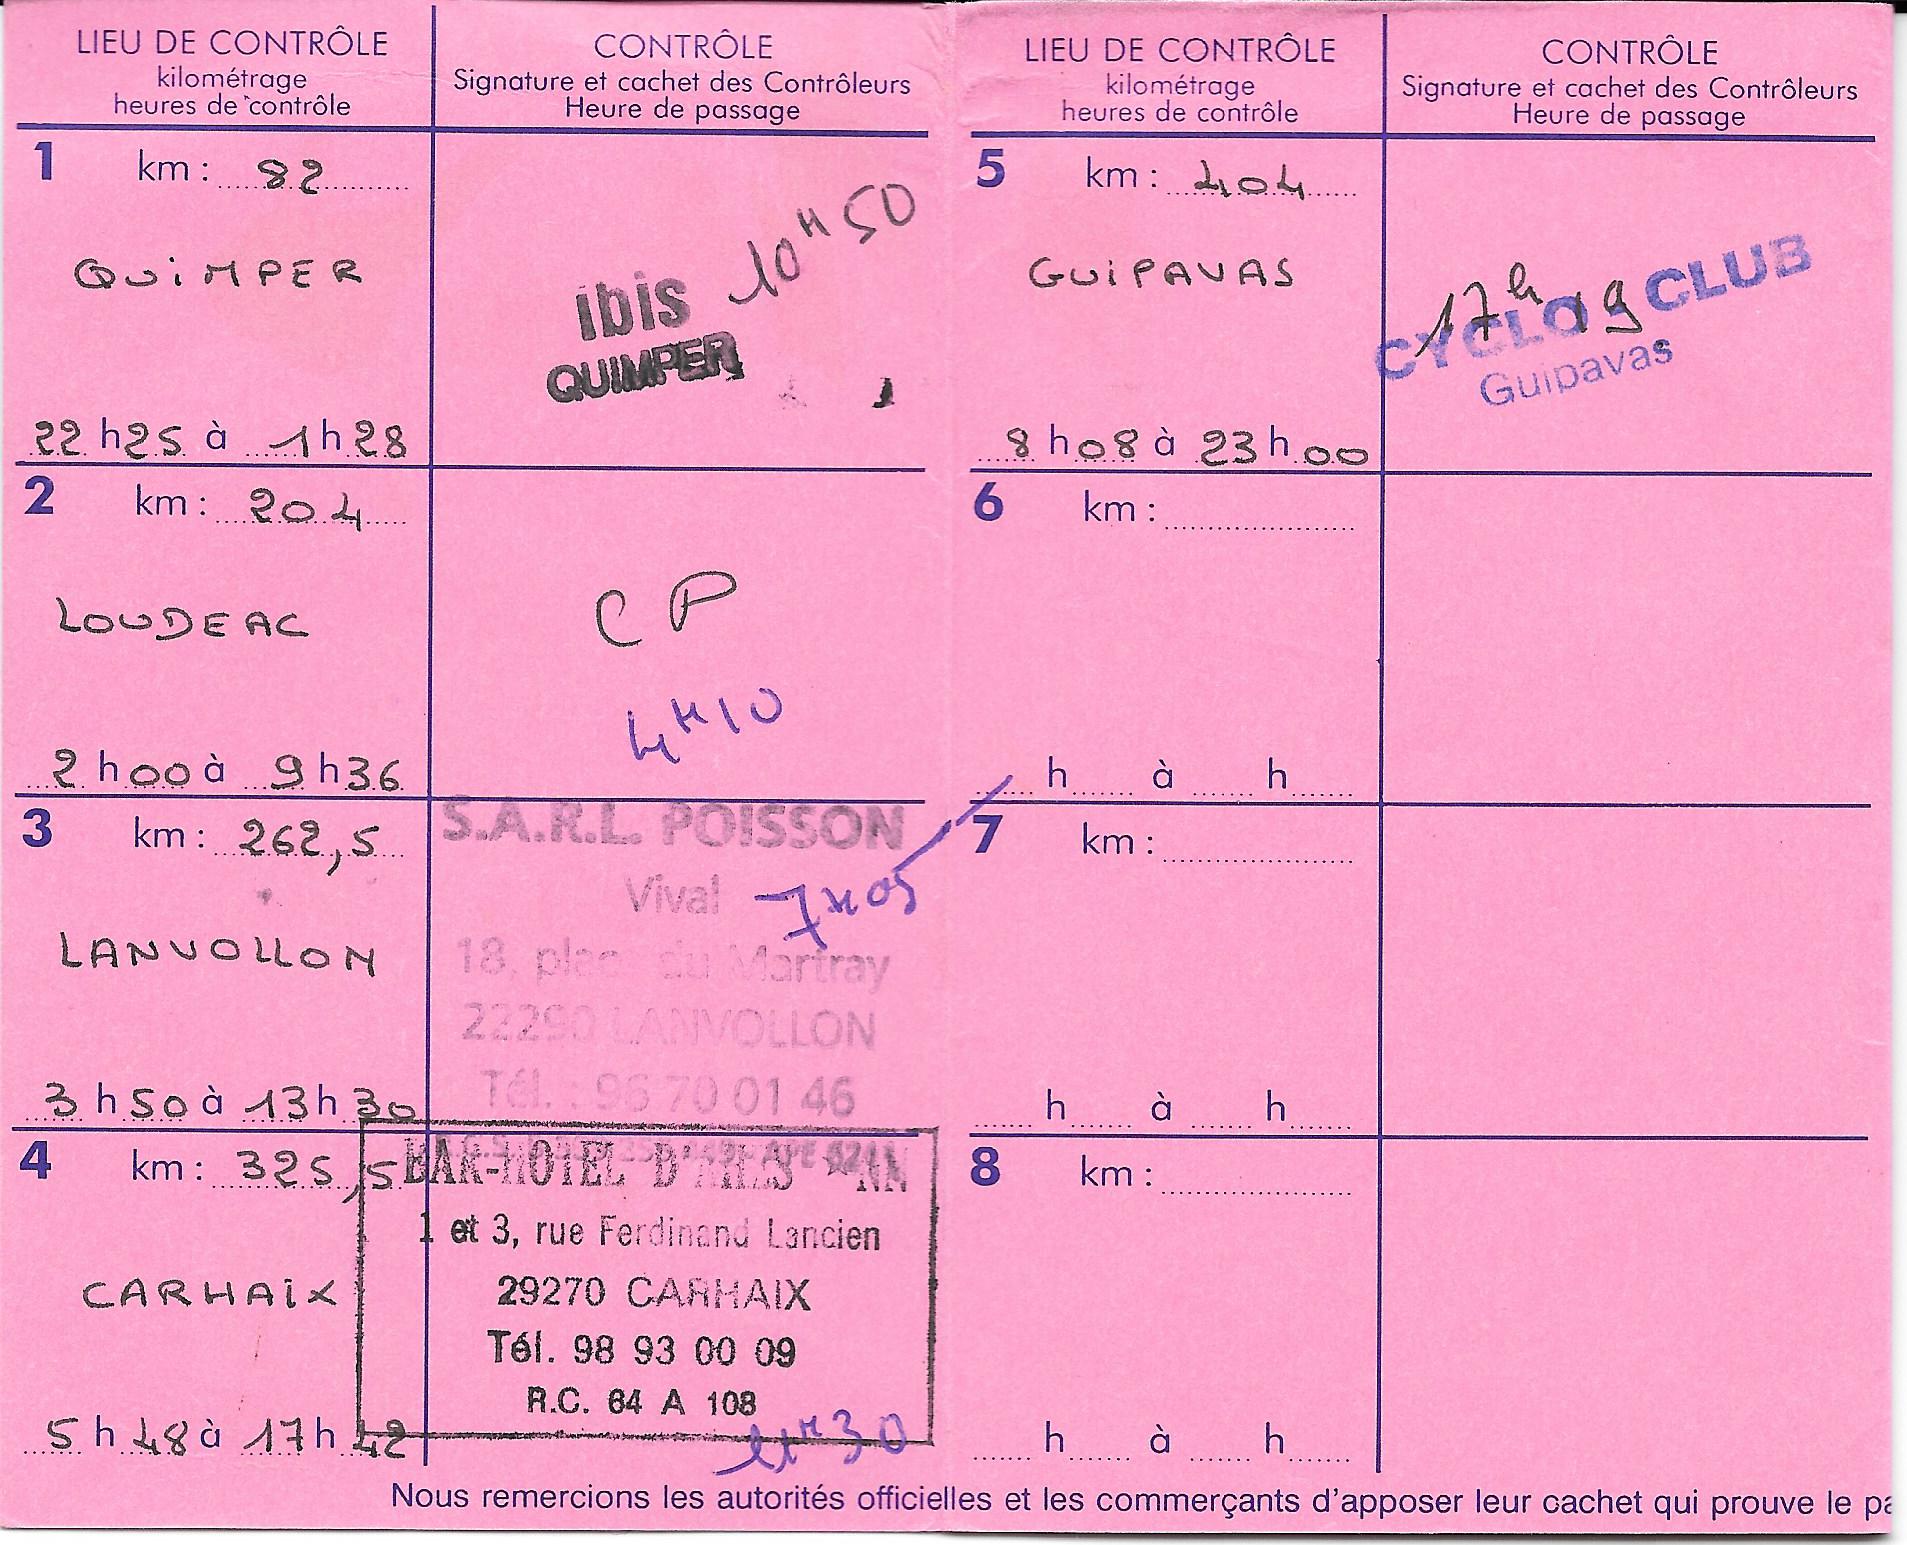 LIEU DE CONTRÔLE
kilométrage
heures de contrôle
CONTRÔLE
Signature et cachet des Contrôleurs
Heure de passage
1 km : 82
QUiMPER
22 h 25 à 1 h 28
10H50
ibis
QUIMPER
2 km : 204
LOUDEAC
2 h 00 à 9 h 36
CP
4H10
3 km : 262,5
LANVOLLON
3 h 50 à 13 h 30
S.A.R.L. POISSON
Vival
7H05
18, place du Martray
22290 LANVOLLON
Tél. 96 70 01 46
4 km : 325,5
CARHAiX
5 h 48 à 17 h 42
BAR-HOTEL D'AHES *NN
1 et 3, rue Ferdinand Lancien
29270 CARHAIX
Tél. 98 93 00 09
R.C. 64 A 108
11H30
LIEU DE CONTRÔLE
kilométrage
heures de contrôle
CONTRÔLE
Signature et cachet des Contrôleurs
Heure de passage
5 km : 404
GUiPAVAS
8 h 08 à 23 h 00
17h19
CYCLO CLUB
Guipavas
6 km :
h à h
7 km :
h à h
8 km :
h à h
Nous remercions les autorités officielles et les commerçants d'apposer leur cachet qui prouve le pa